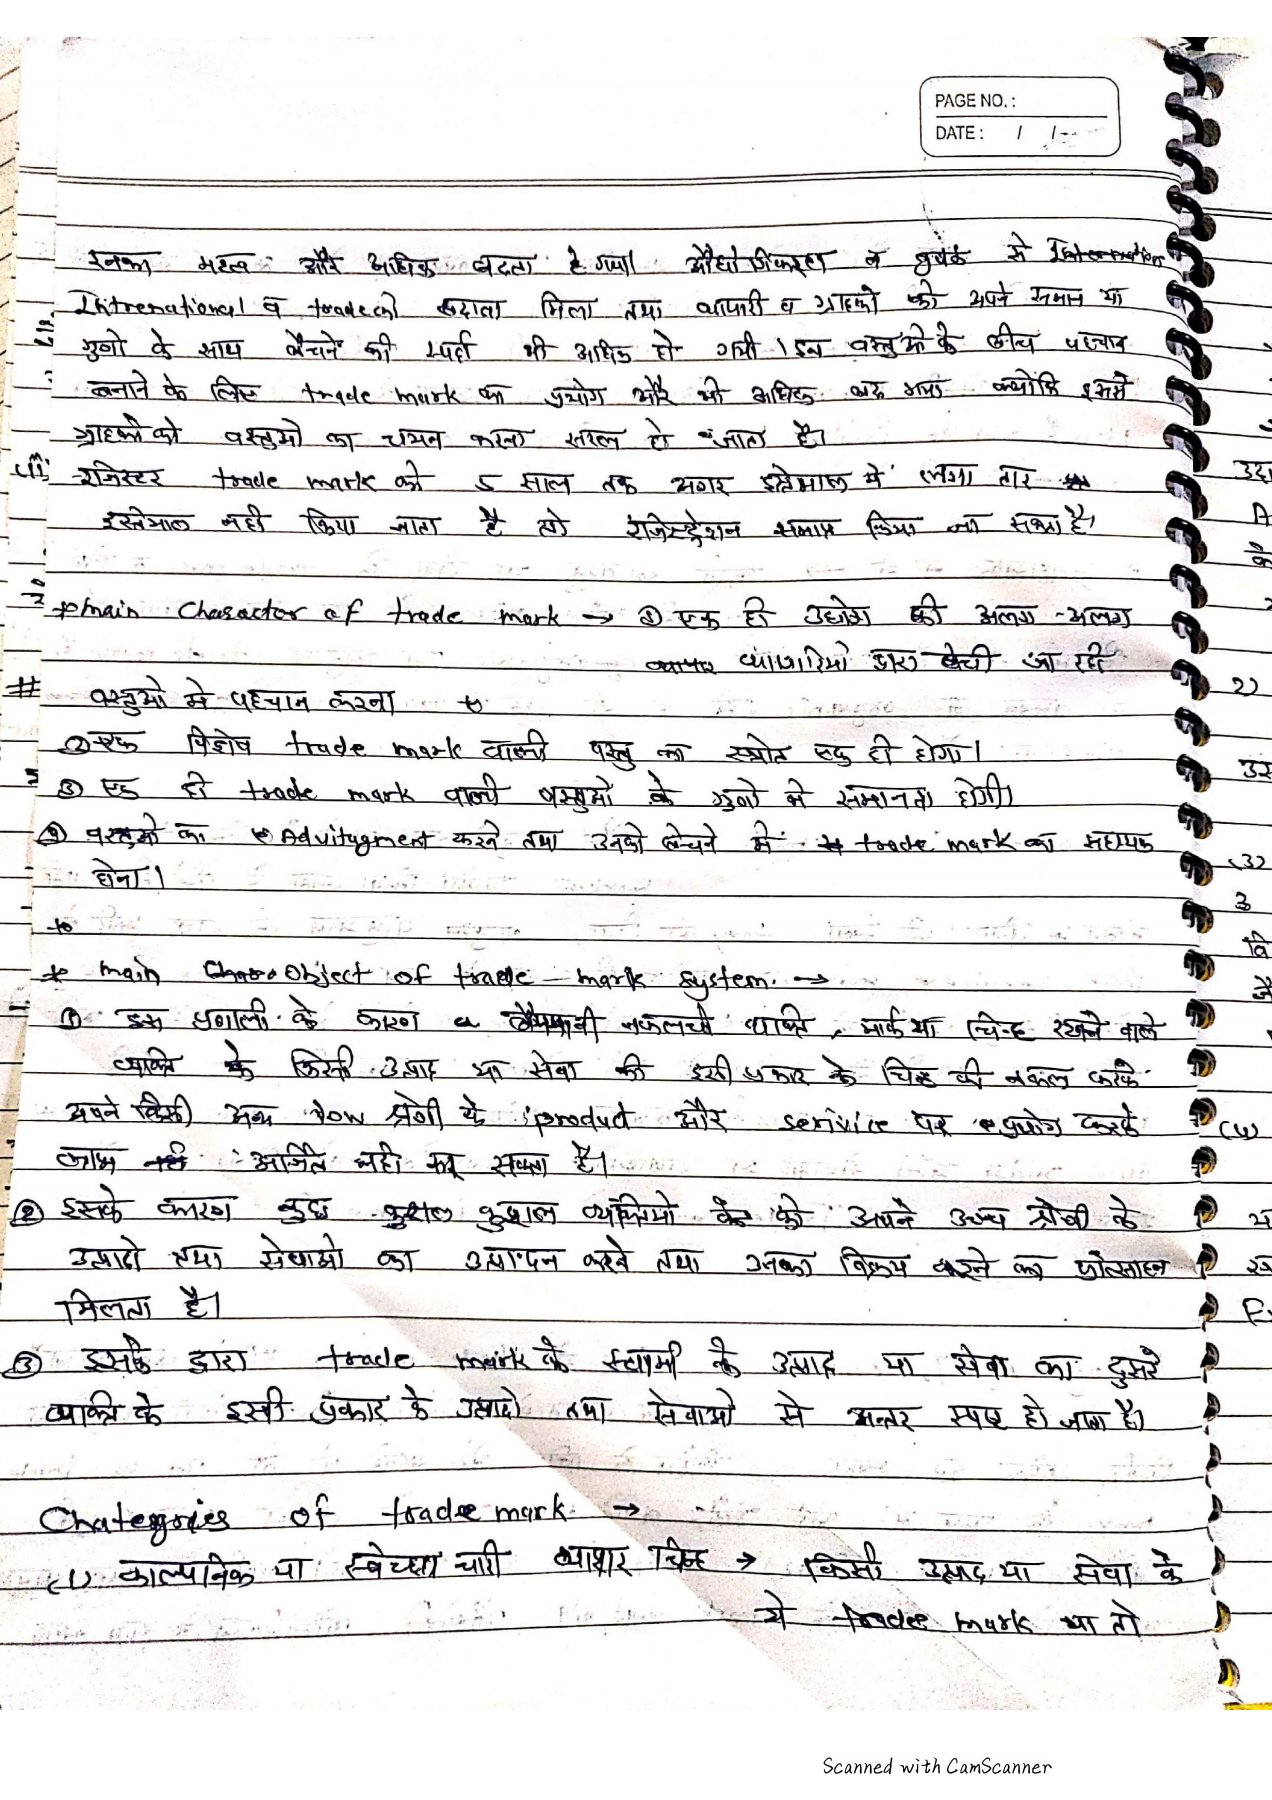 PAGE NO. :
DATE : / /
इनका महत्व और अधिक बढता है गया। औद्योगिकरण व से Internation
Intrenational व trade को बढावा मिला तथा व्यापारी व ग्राहको को अपने समान या
गुणो के साथ बैचने की स्पर्दा भी अधिक हो गयी। इन वस्तुओ के बीच पहचान
बनाने के लिए trade mark का प्रयोग और भी अधिक बढ गया क्योकि इससे
ग्राहको को वस्तुओ का चयन करना सरल हो जाता है।
रजिस्टर trade mark को 5 साल तक अगर इस्तेमाल में लगा तार
इस्तेमाल नही किया जाता है तो रजिस्ट्रेशन समाप्त किया जा सकता है।
* main Charactor of trade mark → ① एक ही उद्योग की अलग-अलग
व्यापारियो द्वारा बेची जा रही
# वस्तुओ मे पहचान करना
② एक विशेष trade mark वाली वस्तु का स्त्रोत एक ही होगा।
③ एक ही trade mark वाली वस्तुओ के गुणो मे समानता होगी।
④ वस्तुओ का Advitygment करने तथा उनको बेचने में trade mark का सहायक
होना।
* main Object of trade-mark system. →
① इस प्रणाली के कारण नकलची व्यक्ति, मार्क या चिन्ह रखने वाले
व्यक्ति के किसी उत्पाद या सेवा की इसी प्रकार के चिन्ह की नकल करके
अपने किसी अन्य low श्रेणी के product और serivice पर प्रयोग करके
लाभ अर्जित नही कर सकता है।
② इसके कारण कुछ कुशल व्यक्तियो को अपने उच्च श्रेणी के
उत्पादो तथा सेवाओ का उत्पादन करने तथा उनका विक्रय करने का प्रोत्साहन
मिलता है।
③ इसके द्वारा trade mark के स्वामी के उत्पाद या सेवा का दुसरे
व्यक्ति के इसी प्रकार के उत्पादो तथा सेवाओ से अन्तर स्पष्ट हो जाता है।
Chategories of trade mark →
(1) काल्पनिक या स्वेच्छाचारी व्यापार चिन्ह → किसी उत्पाद या सेवा के
ये trade mark या तो
Scanned with CamScanner